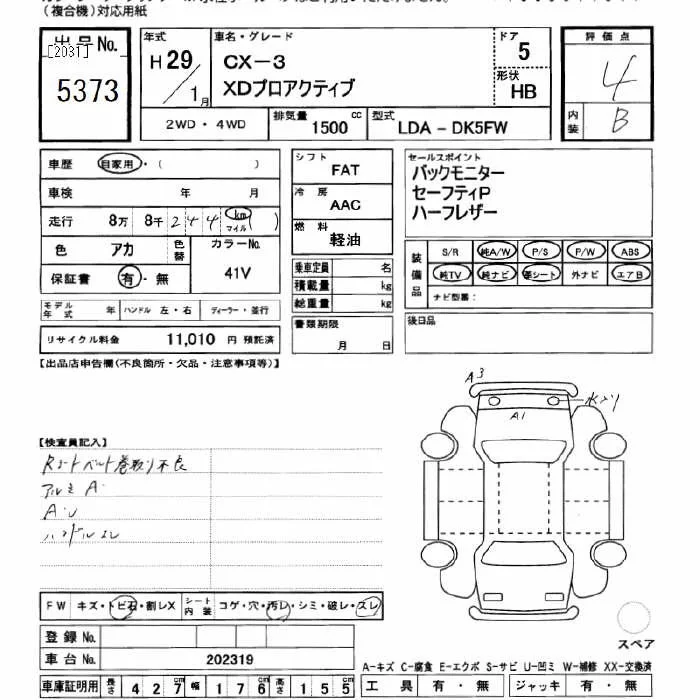 (複合機)対応用紙
出品No.
[2031]
5373
年式
H29/1月
車名・グレード
CX-3
XDプロアクティブ
ドア
5
形状
HB
評価点
4
内装
B
2WD・4WD
排気量 1500 cc
型式 LDA-DK5FW
車歴 自家用・( )
車検 年 月
走行 8万 8千 2 4 4 km マイル( )
色 アカ 色替
カラーNo.
41V
保証書 有・無
モデル年式 年 ハンドル 左・右 ディーラー・並行
リサイクル料金 11,010 円 預託済
シフト
FAT
冷房
AAC
燃料
軽油
乗車定員 名
積載量 kg
総重量 kg
書類期限
月 日
セールスポイント
バックモニター
セーフティP
ハーフレザー
装備品
S/R 純A/W P/S P/W ABS
純TV 純ナビ 革シート 外ナビ エアB
ナビ型番:
後日品
【出品店申告欄(不良箇所・欠品・注意事項等)】
A3
A1
【検査員記入】
Rシートベルト巻取り不良
アルミA.
A.U
ハンドルスレ
FW キズ・トビ石・割レX
シート内装 コゲ・穴・汚レ・シミ・破レ・スレ
登録No.
車台No. 202319
車庫証明用 長さ 427 幅 176 高さ 155
スペア
A-キズ C-腐食 E-エクボ S-サビ U-凹ミ W-補修 XX-交換済
工具 有・無 ジャッキ 有・無